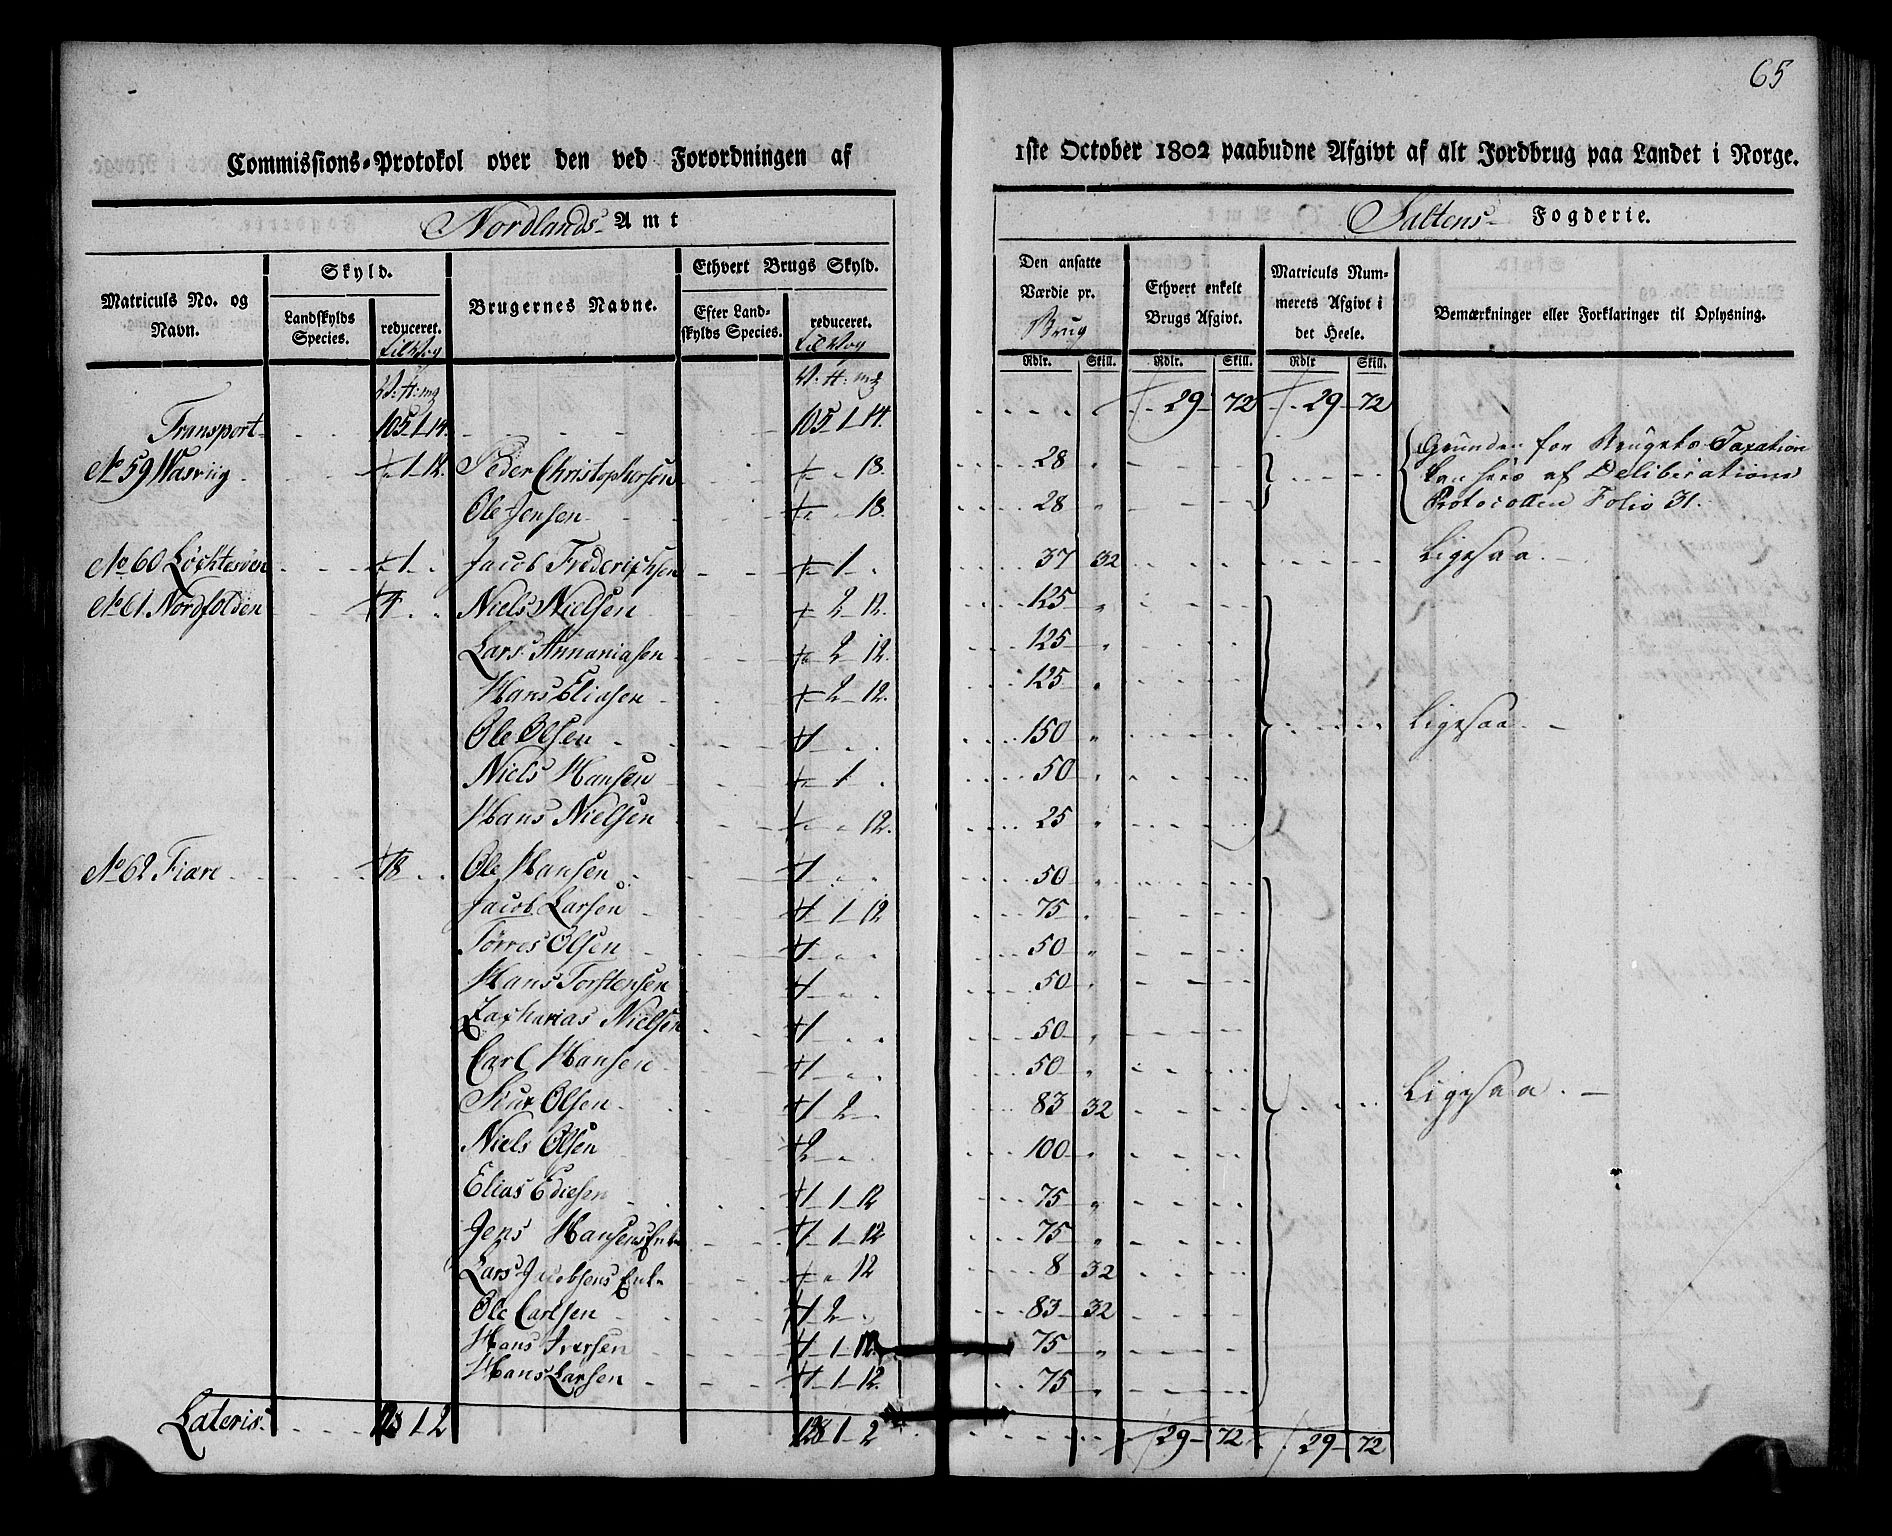 65
Commissions-Protokol over den ved Forordningen af 1ste October 1802 paabudne Afgivt af alt Jordbrug paa Landet i Norge.
Nordlands Amt
Saltens Fogderie.
Matriculs No. og Navn.
Skyld.
Landskylds Species.
reduceret.
Brugernes Navne.
Ethvert Brugs Skyld.
Efter Landskylds Species.
reduceret.
Den ansatte Værdie pr. Brug
Rdlr. Skill.
Ethvert enkelt Brugs Afgivt.
Rdlr. Skill.
Matriculs Nummerets Afgivt i det Heele.
Rdlr Skill.
Bemærkninger eller Forklaringer til Oplysning.
Transport 105 1 14. 105 1 14. 29 72 29 72
No 59 1 12 Peder Christophersen 18. 28 Grunden for Brugets Taxation
Ole Jensen 18. 28 sees af Deliberations
Protocollen Folio 31.
No 60 1 Jacob Friderichsen 1 37 32 Ligesaa.
No 61. Nordfolden 7 Niels Nielsen 2 12. 125
Lars Annaniasen 2 12. 125
Hans Eliasen 2 12. 125
Ole Olsen 1 150 Ligesaa.
Niels Hansen 1 50
Hans Nielsen 12. 25
No 62 Fiære 18 Ole Hansen 1 50
Jacob Larsen 1 1 12 75
Torres Olsen 1 50
Hans Torstensen 1 50
Zacharias Nielsen 1 50
Carl Hansen 1 50
Siur Olsen 1 2 83 32 Ligesaa.
Niels Olsen 2 100
Elias Ediesen 1 1 12 75
Jens Hansens Enke 1 1 12 75
Lars Jacobsens Enke 12 8 32
Ole Carlsen 1 2 83 32
Hans Iversen 1 1 12. 75
Hans Larsen 1 1 12. 75
Lateris 128 1 2 128 1 2 29 72 29 72